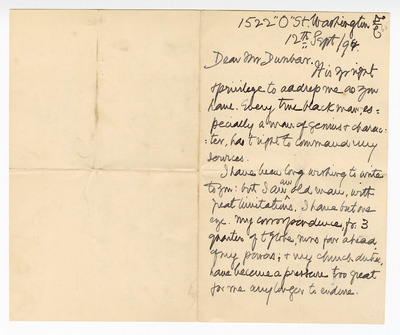 1522 "O" St. Washington
12th Sept/94.
Dear Mr Dunbar.
It is yr right
& privilege to address me as you
have. Every true black man, es=
pecially a man of genius & charac=
=ter, has t' right to command my
services.
I have been long wishing to write
to you: but I am an old man, with
great limitations. I have but one
eye. My correspondence, fr. 3
quarters of t' globe, runs far ahead
of my powers; & my church duties,
have become a pressure too great
for me any longer to endure.